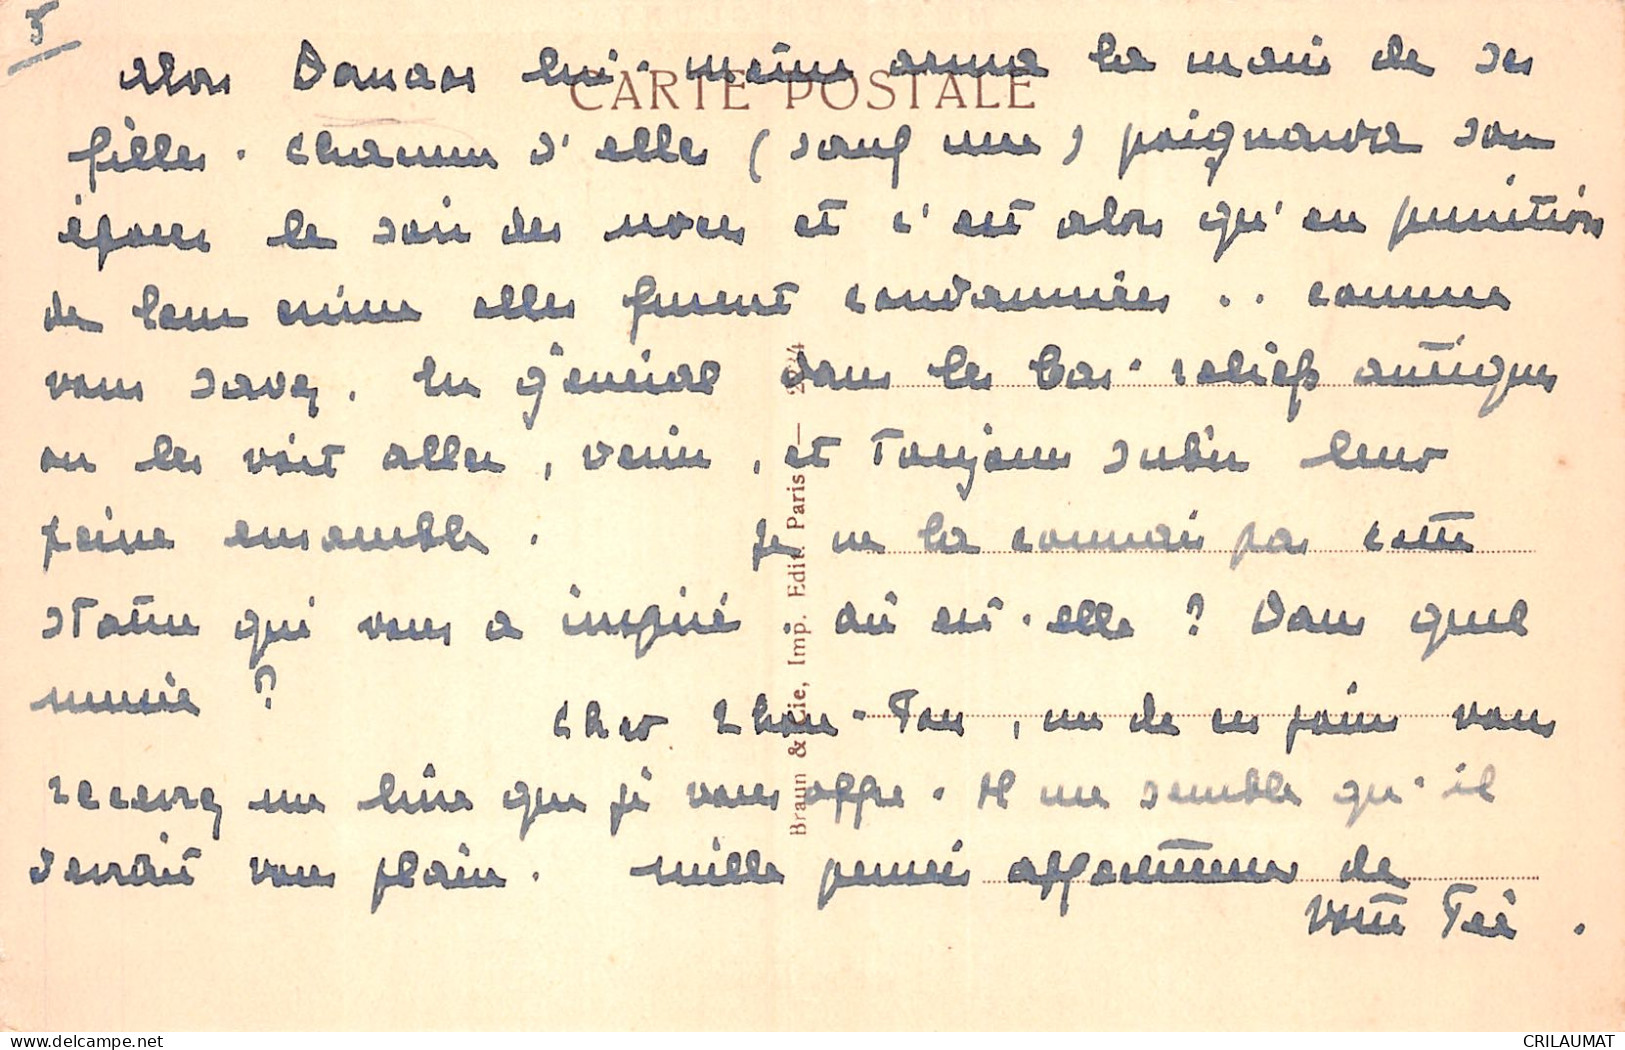 5
alors Danaos lui-même arma la main de ses
CARTE POSTALE
filles. chacune d'elles (sauf une) poignarda son
époux le soir des noces et c'est alors qu'en punition
de leur crime elles furent condamnées .. comme
vous savez. En général dans les bas-reliefs antiques
on les voit aller, venir, et toujours subir leur
peine ensemble. Je ne la connais pas cette
statue qui vous a inspiré. où est-elle ? Dans quel
musée ?
cher Zhou-Tou, un de ces jours vous
recevrez un livre que je vous offre. Il me semble qu'il
devrait vous plaire. mille pensées affectueuses de
votre Téé.
Braun & Cie, Imp. Edit. Paris —
delcampe.net
CRILAUMAT